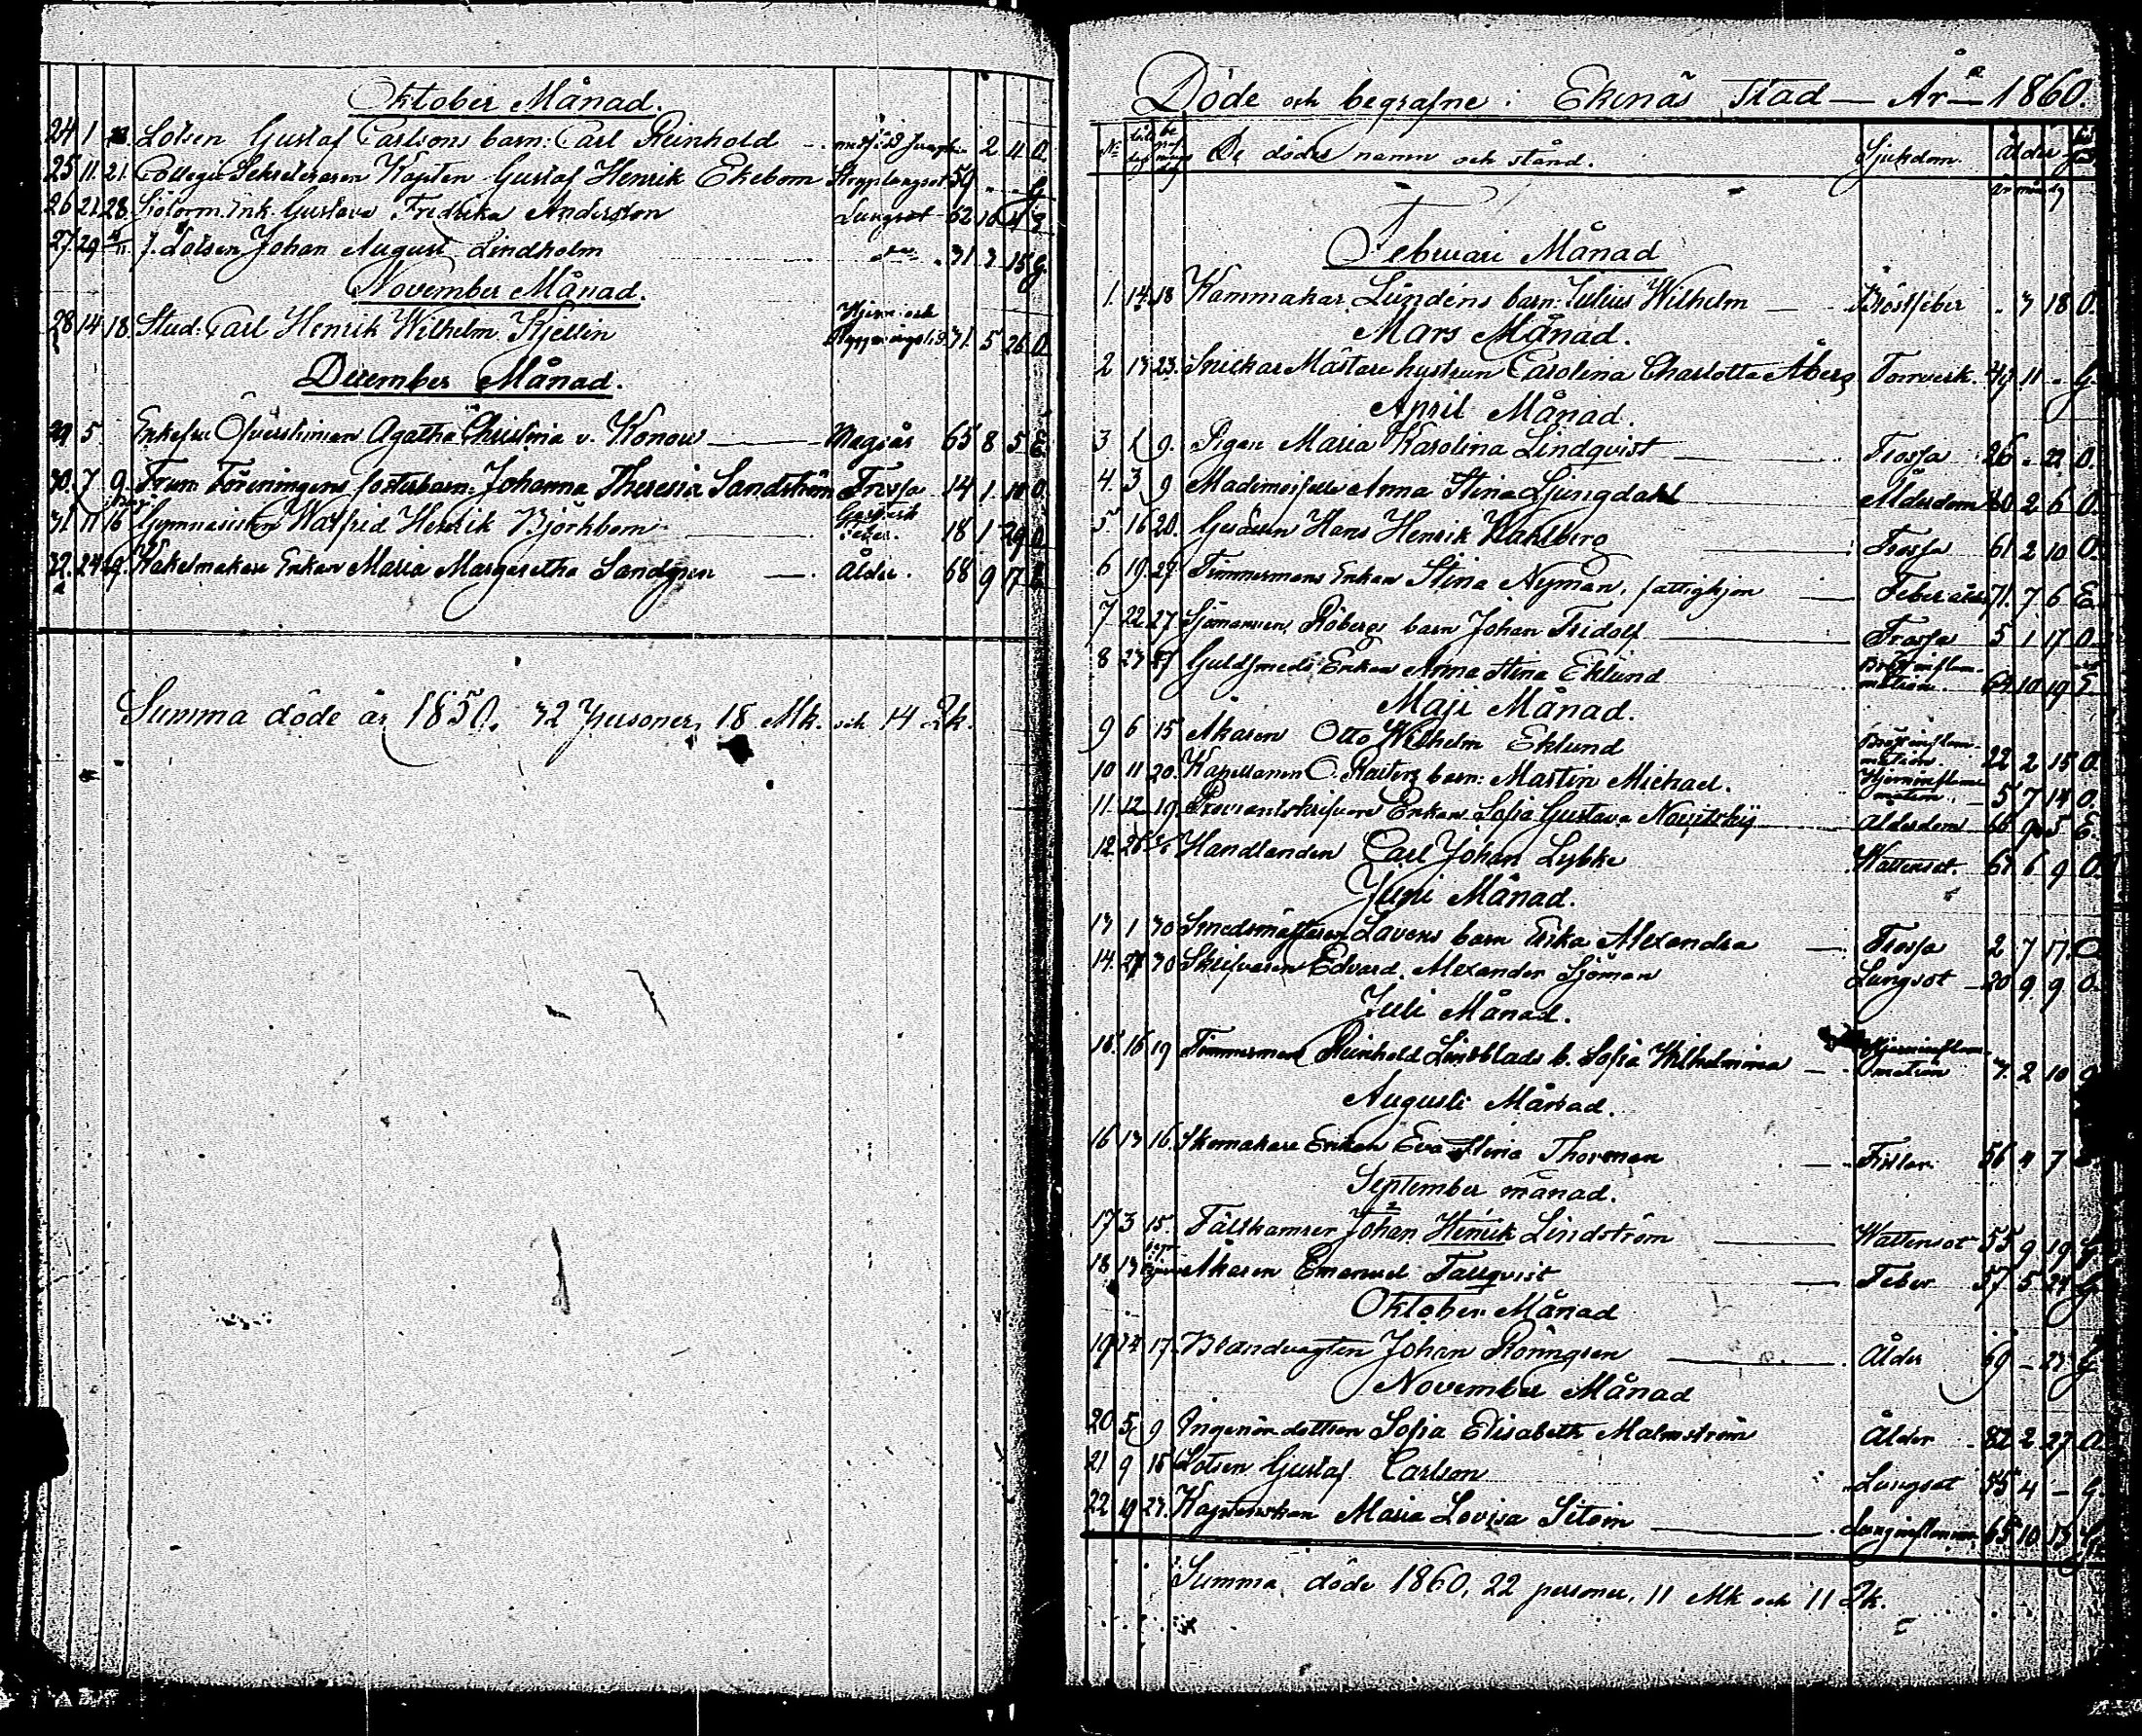 Oktober Månad.
24 1 Lotsen Gustaf Carlsons barn: Carl Reinhold 2 11 O.
25 11. 21. Collegii Sekreteraren Kapiten Gustaf Henrik Ekebom 59 G
26 21 28 Enk. Gustava Fredrika Andersson Lungsot 62 10
27 29 f. Lotsen Johan August Lindholm 15 G
November Månad.
28 14 18. Stud. Carl Henrik Wilhelm Kjellin Hjern och 5 26 O.
December Månad.
29 5 Enkefru Öfverstinnan Agatha Christina v. Konow 65 8 5 E.
30. 7 9. Frun. Föreningens fosterbarn: Johanna Theresia Sandström Trossa 14 1 O
31. 11 16 Gymnasisten Walfrid Henrik Björkbom Gastrisk feber. 18 1 29 O
32. 24 29. Kakelmakare Enkan Maria Margaretha Sandgren Ålder. 68 9 17 E
Summa döde år 1850. 32 personer, 18 Mk. och 14 Qk.
Döde och begrafne i Ekenäs Stad — År 1860.
No De dödes namn och stånd. Sjukdom. Ålder
Februari Månad
1. 14. 18 Kammakar Lündéns barn: Julius Wilhelm Bröstfeber 3 18 O.
Mars Månad.
2 13 23. Snickare Mästare hustrun Carolina Charlotta Åberg Torrverk. 11 G.
April Månad.
3 1 9. Pigan Maria Karolina Lindqvist Trossa 26 22 O.
4. 3 9 Mademoiselle Anna Stina Ljungdahl Ålderdom 2 6 O.
5. 16 20. Hans Henrik Wahlberg Trossa 61 2 10 O.
6 19. 27 Timmermans Enkan Stina Nyman, fattighjon Feber ålder 71. 7 6 E
7 22 27 Sjömannen Röbergs barn Johan Fridolf Trossa 5 1 17 O.
8 23 27 Guldsmeds Enkan Anna Stina Eklund Bröstinflammation 10 19 E
Maji Månad.
9 6 15 Åkaren Otto Wilhelm Eklund Bröstinflammation. 22 2 15 O.
10 11 20. Kapellanen O. barn: Martin Michael. Hjerninflammation. 5 7 14 O.
11. 12 19. Proviantskrifvare Enkan Sofia Gustava Novitsky Ålderdom 66 9 5 E.
12. 26 Handlanden Carl Johan Lybke Wattensot. 6 9 O
Juni Månad.
13 1 30 Smedsmästaren Lavens barn Erika Alexandra Trossa 2 7 17. O
14. 27 30 Skrifvaren Edvard Alexander Sjöman Lungsot 20 9 9 O.
Juli Månad.
15. 16 19 Timmerman Reinhold Lindblads b. Sofia Wilhelmina Hjerninflammation 2 10
Augusti Månad.
16 13 16. Skomakare Enkan Eva Stina Thorman 56 4 7
September månad.
17 3 15. Fältskamrer Johan Henrik Lindström Wattensot 55 9 19 G
18 13 Åkaren Emanuel Tallqvist Feber 57 5 24 G
Oktober Månad
19 14 17. Brandvagten Johan Rönngren Ålder 69 — 23 G
November Månad
20 5 9 Ingeniör dottren Sofia Elisabeth Malmström Ålder 82 2 27 O
21 9 15 Lotsen Gustaf Carlson Lungsot 55 4 — G.
22 19 27. Kaptenskan Maria Lovisa 65 10 G
Summa döde 1860, 22 personer, 11 Mk och 11 Qk.